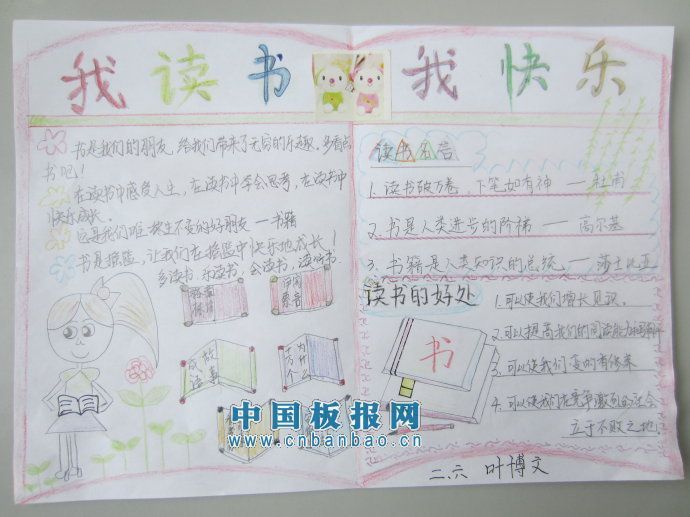 我读书 我快乐
书是我们的朋友,给我们带来了无穷的乐趣,多看点
书吧!
在读书中感受人生,在读书中学会思考,在读书中
快乐成长。
这是我们一生不变的好朋友——书籍
书是摇篮,让我们在摇篮中快乐地成长!
多读书,乐读书,会读书,读好书。
伊索
寓言
成语
故事
十万个
为什么
读书名言
1.读书破万卷,下笔如有神——杜甫
2.书是人类进步的阶梯——高尔基
3.书籍是人类知识的总统——莎士比亚
读书的好处
1.可以使我们增长见识。
2.可以提高我们的阅读能力和写作
3.可以使我们变的有修养
4.可以使我们在竞争激烈的社会
立于不败之地
书
中国板报网
www.cnbanbao.cn
二.六 叶博文